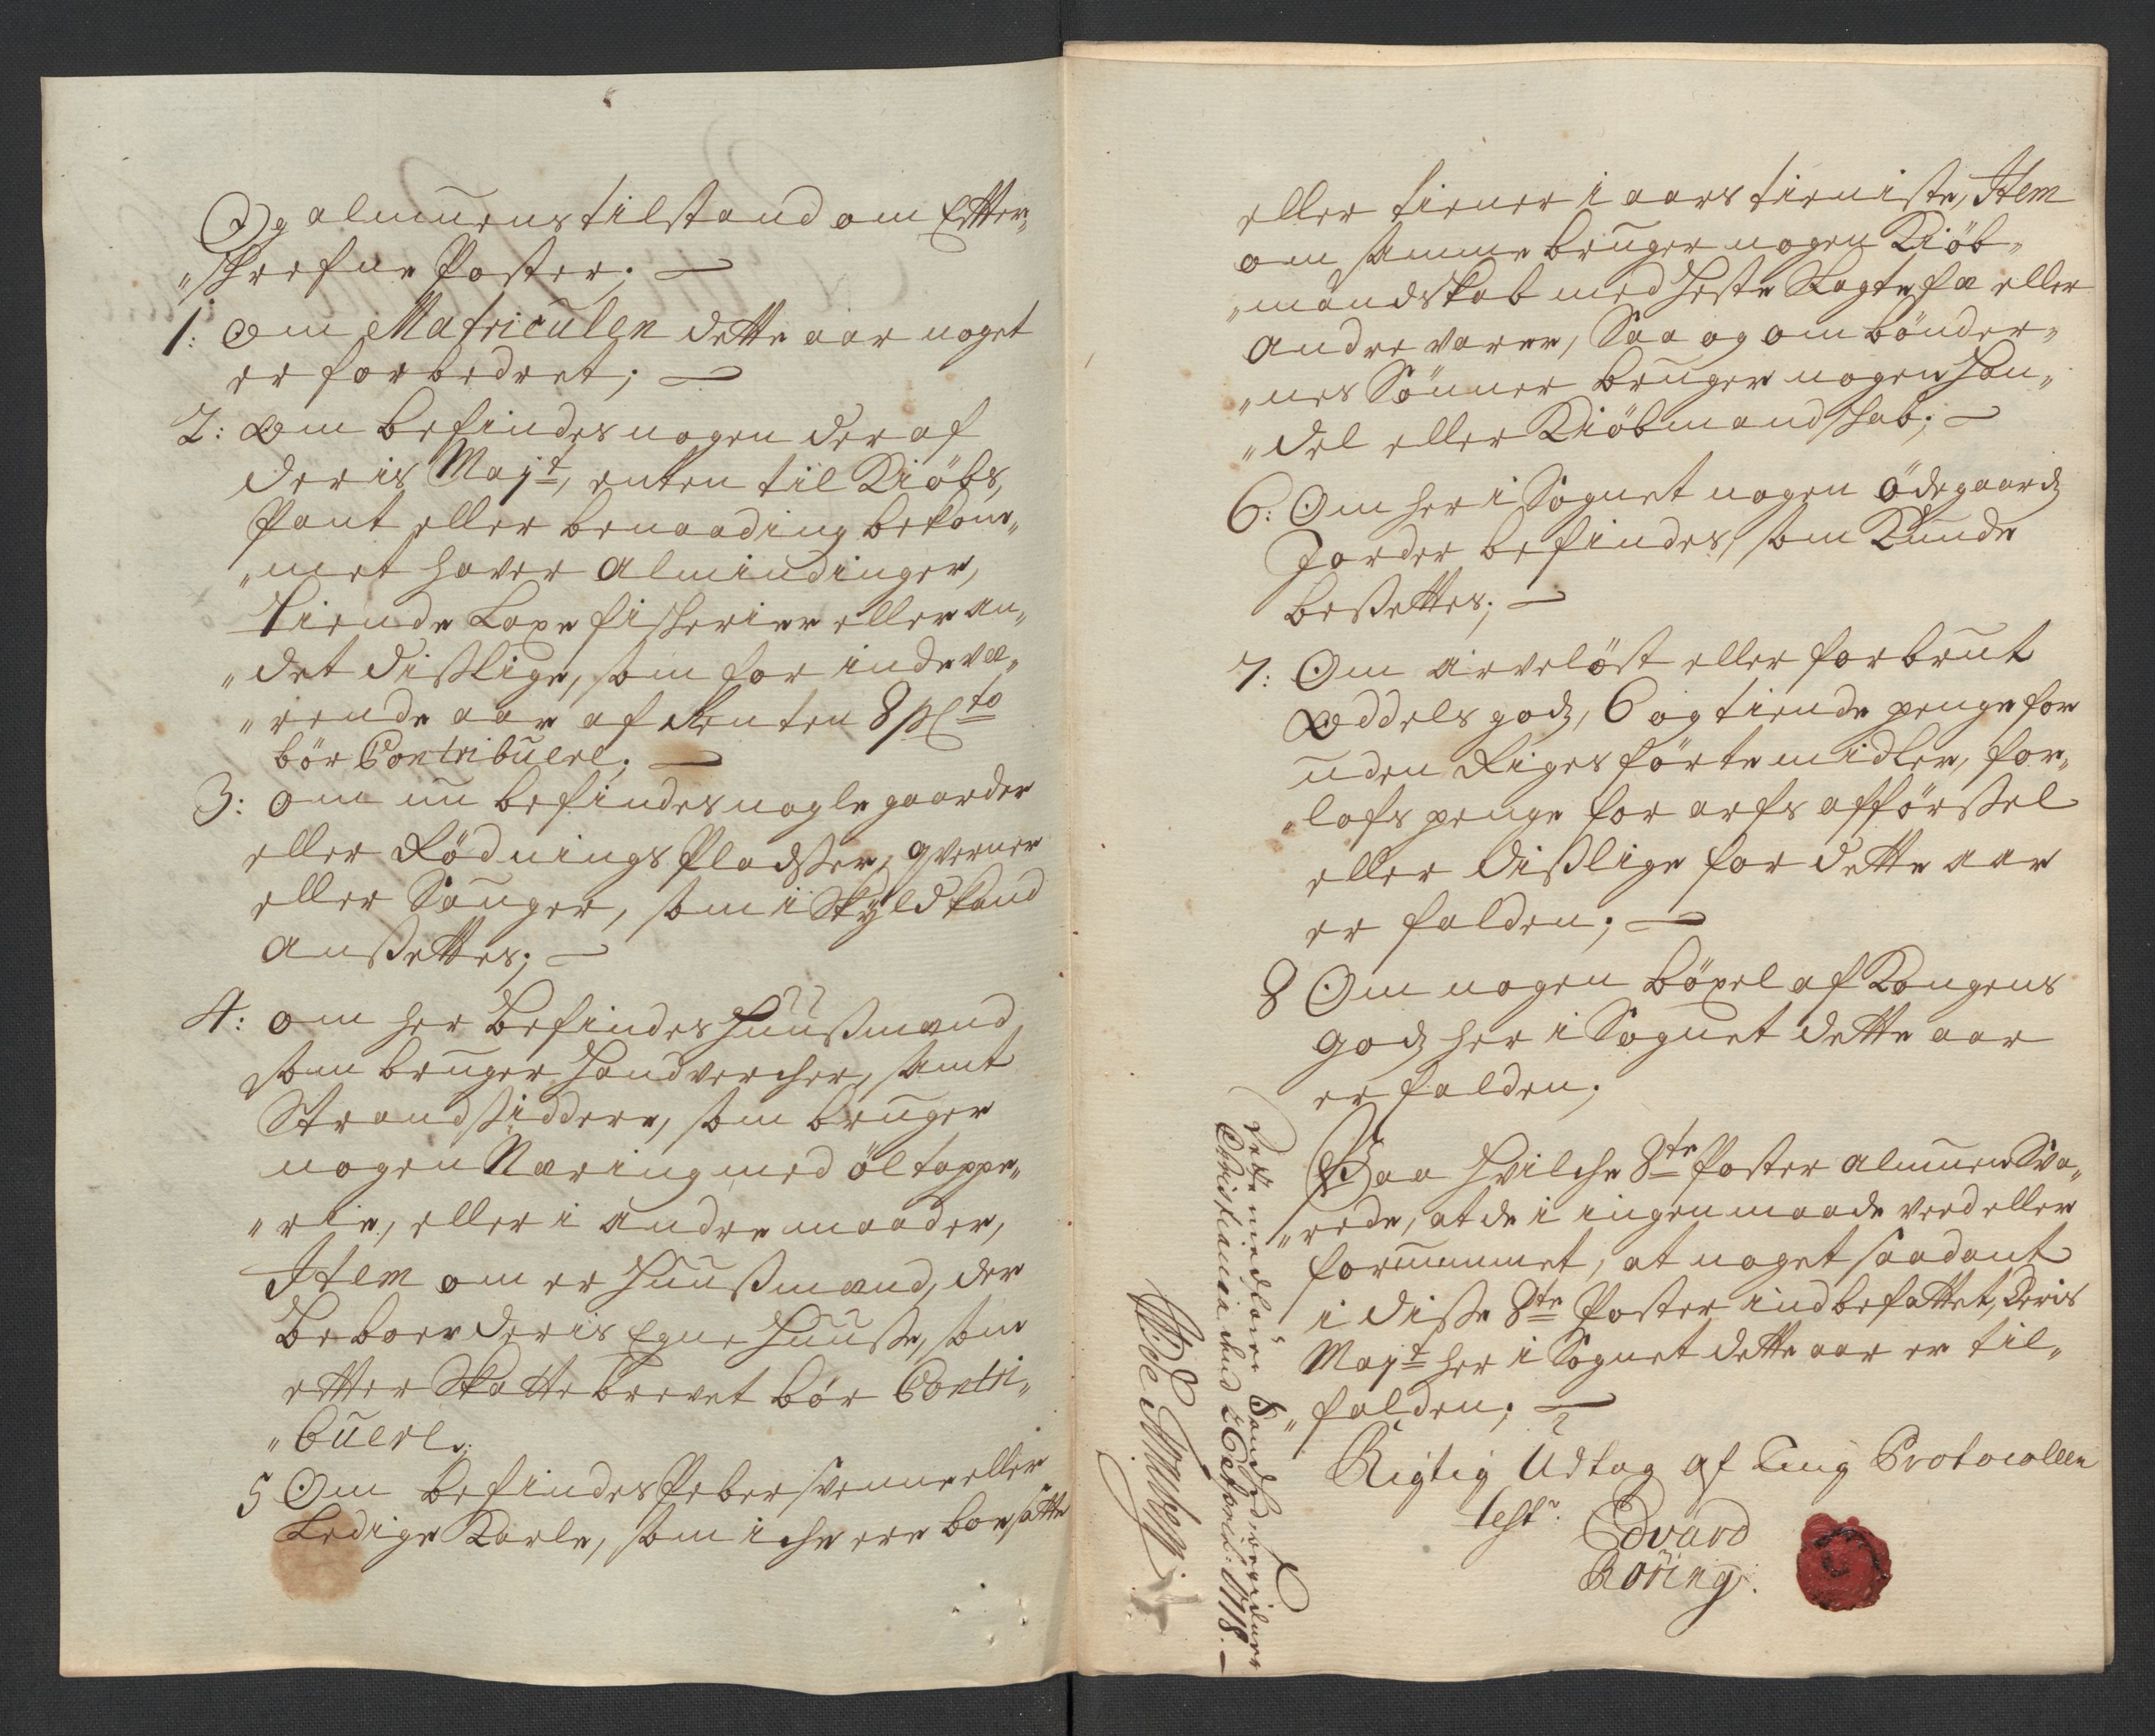 Og almuens tilstand om Efter„
„schrefne Poster. —
1: Om Matriculen dette aar noget
er forbedret; —
2: Om befindes nogen der af
deris Majt, enten til Kiöbs,
Pant eller benaading bekom„
„met haver Almindinger,
Tiende Laxe fischerier eller an„
„det dislige, som for indevæ„
„rende aar af Renten 8 p Cto
bör Contribuere; —
3: Om nu befindes nogle gaarder
eller Rödnings Pladser, qverner
eller Sauger, som i Skyld kand
Ansettes; —
4: Om her Befindes Huusmænd
som bruger Handvercher, samt
Strandsiddere, som bruger
nogen Næring med öltappe„
„rie, eller i andre maader,
Item om er Huusmænd, der
Beboer deris Egne Huuse, som
efter Skatte brevet bör Contri„
„buere.
5 Om befindes Pebersvenne eller
Ledige Karle, som iche ere boesatte
eller tiener i aars tieniste, Item
om samme bruger nogen Kiöb„
„mandskab med Heste Slagte fæ eller
Andre varer, Saa og om bönder„
„nes Sönner bruger nogen Han„
„del eller Kiöbmandschab; —
6: Om her i Sognet nogen ödegaardz
Jorder befindes, som Kunde
besettes; —
7: Om arvelöst eller forbrut
Oddels godz, 6 og tiende penge for
uden Riges förte midler, for„
„lofs penge for arfs afförsel
eller dislige for dette aar
er falden; —
8 Om nogen böxel af Kongens
godz her i Sognet dette aar
er falden;
Paa hvilche 8te Poster almuen Sva„
„rede, at de i ingen maade veed eller
fornummet, at noget saadant
i disse 8te Poster indbefattet, deris
Majt her i Sognet dette aar er til„
„falden; —
Rigtig Udtog af Ting Protocollen
test:
Edvard
Röring.
Dette medfölger
Christiania den 26 1718. —